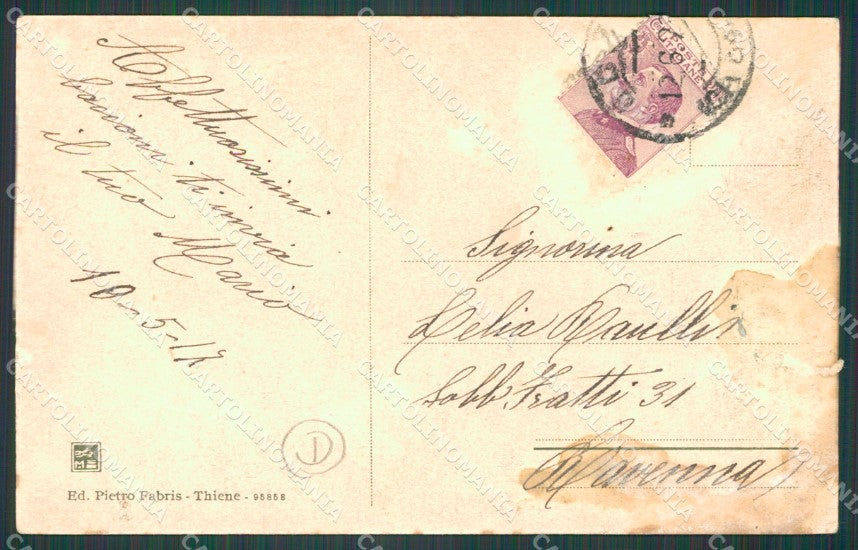 Affettuosissimi
bacioni ti invia
il tuo Mario
10-5-17
Signorina
Delia Raulli
Sobb. Fratti 31
Ravenna
POSTE
ITALIANE
D
Ed. Pietro Fabris - Thiene - 95858
CARTOLINOMANIA